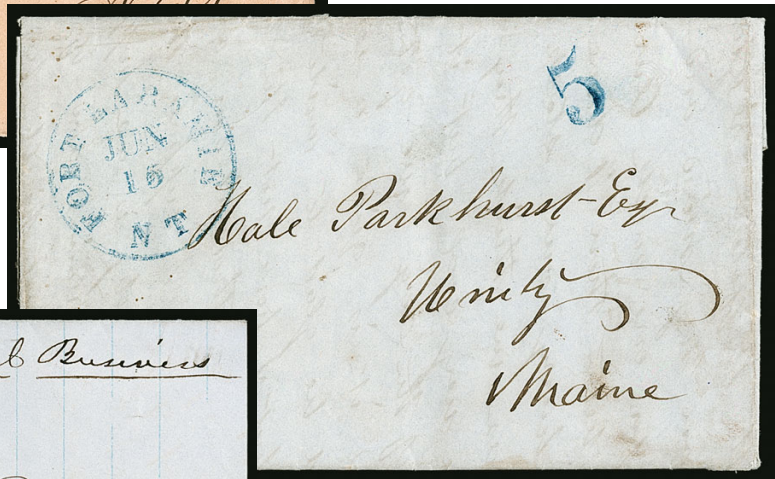 FORT LARAMIE
JUN
15
N T
5
Hale Parkhurst Esqr
Unity
Maine
Business